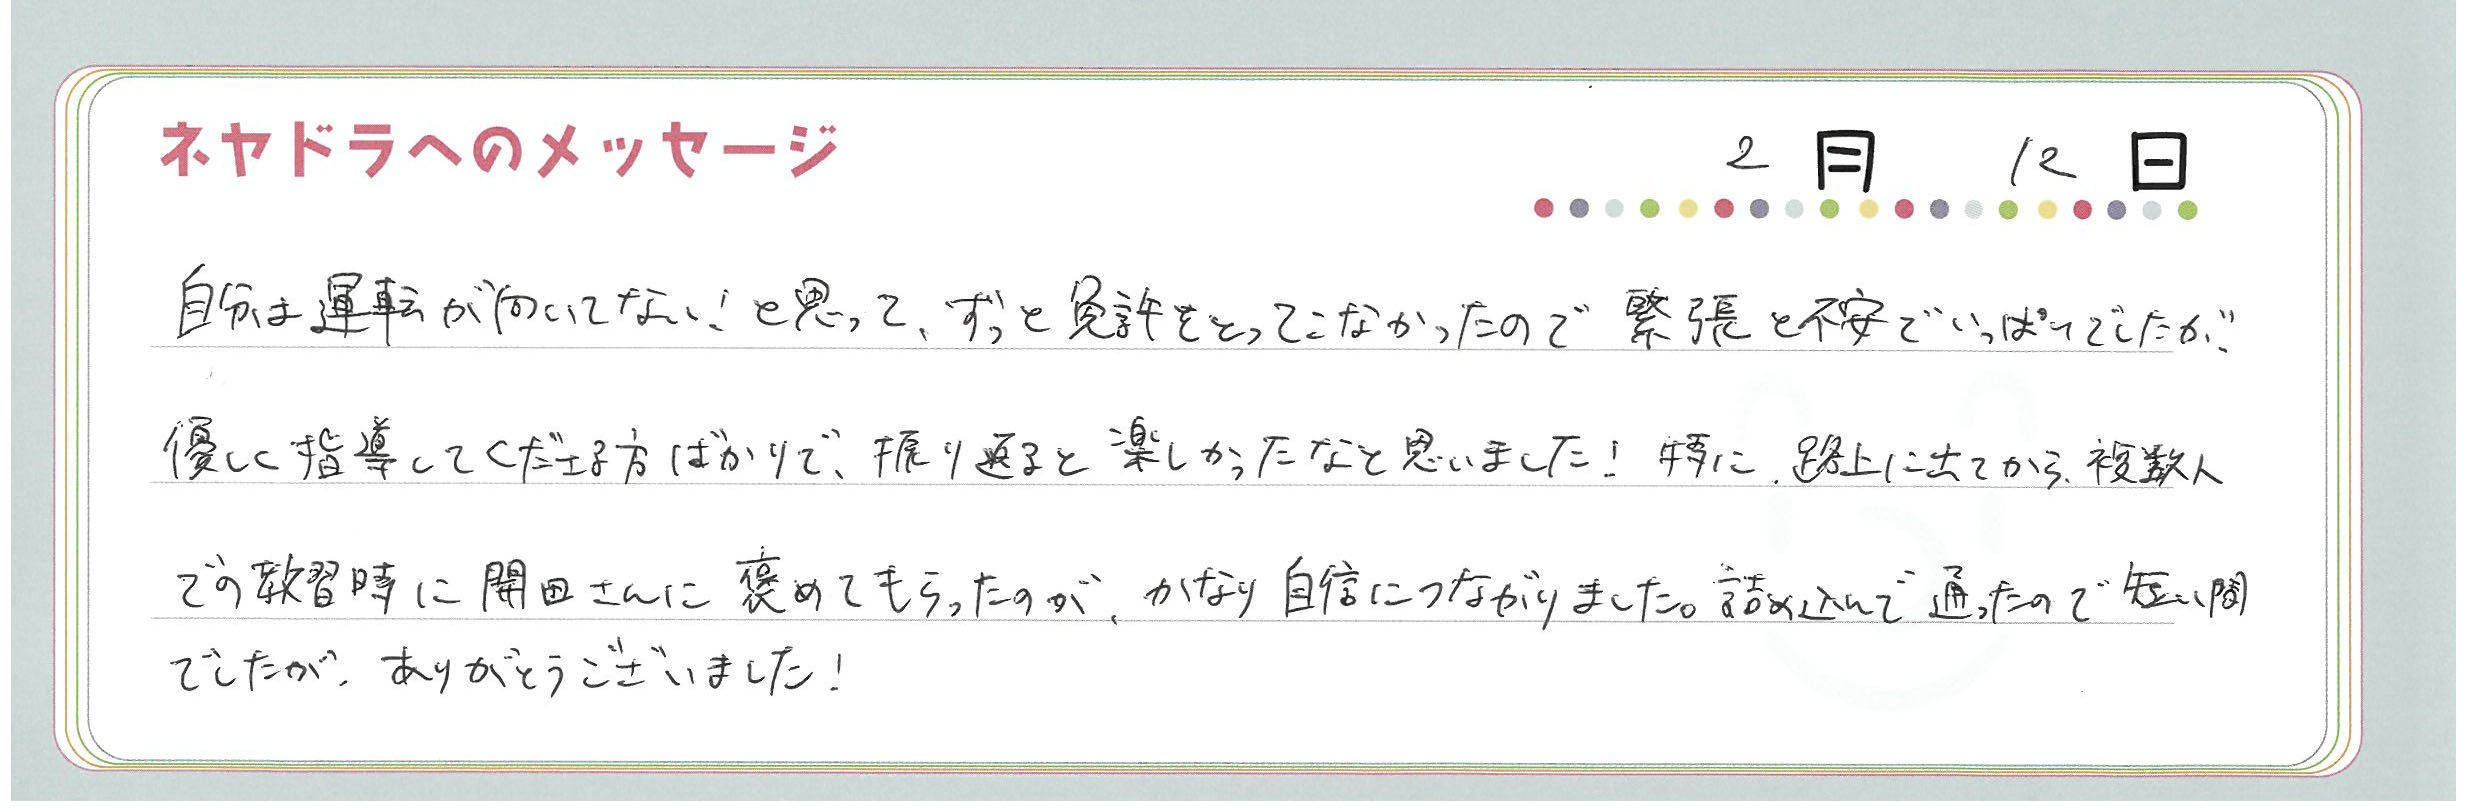 ネヤドラへのメッセージ
2月 12日
自分は運転が向いてない!と思って、ずっと免許をとってこなかったので緊張と不安でいっぱいでしたが、
優しく指導してくださる方ばかりで、振り返ると楽しかったなと思いました!特に、路上に出てから、複数人
での教習時に開田さんに褒めてもらったのが、かなり自信につながりました。詰め込んで通ったので短い間
でしたが、ありがとうございました!